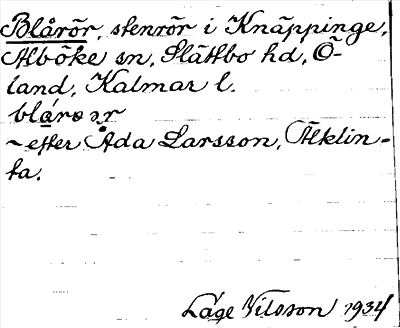 Blårör, stenrör i Knäppinge,
Alböke sn, Slättbo hd, Ö-
land, Kalmar l.
blárəər
~ efter Ada Larsson, Älklin-
ta.
Låge Nilsson 1934